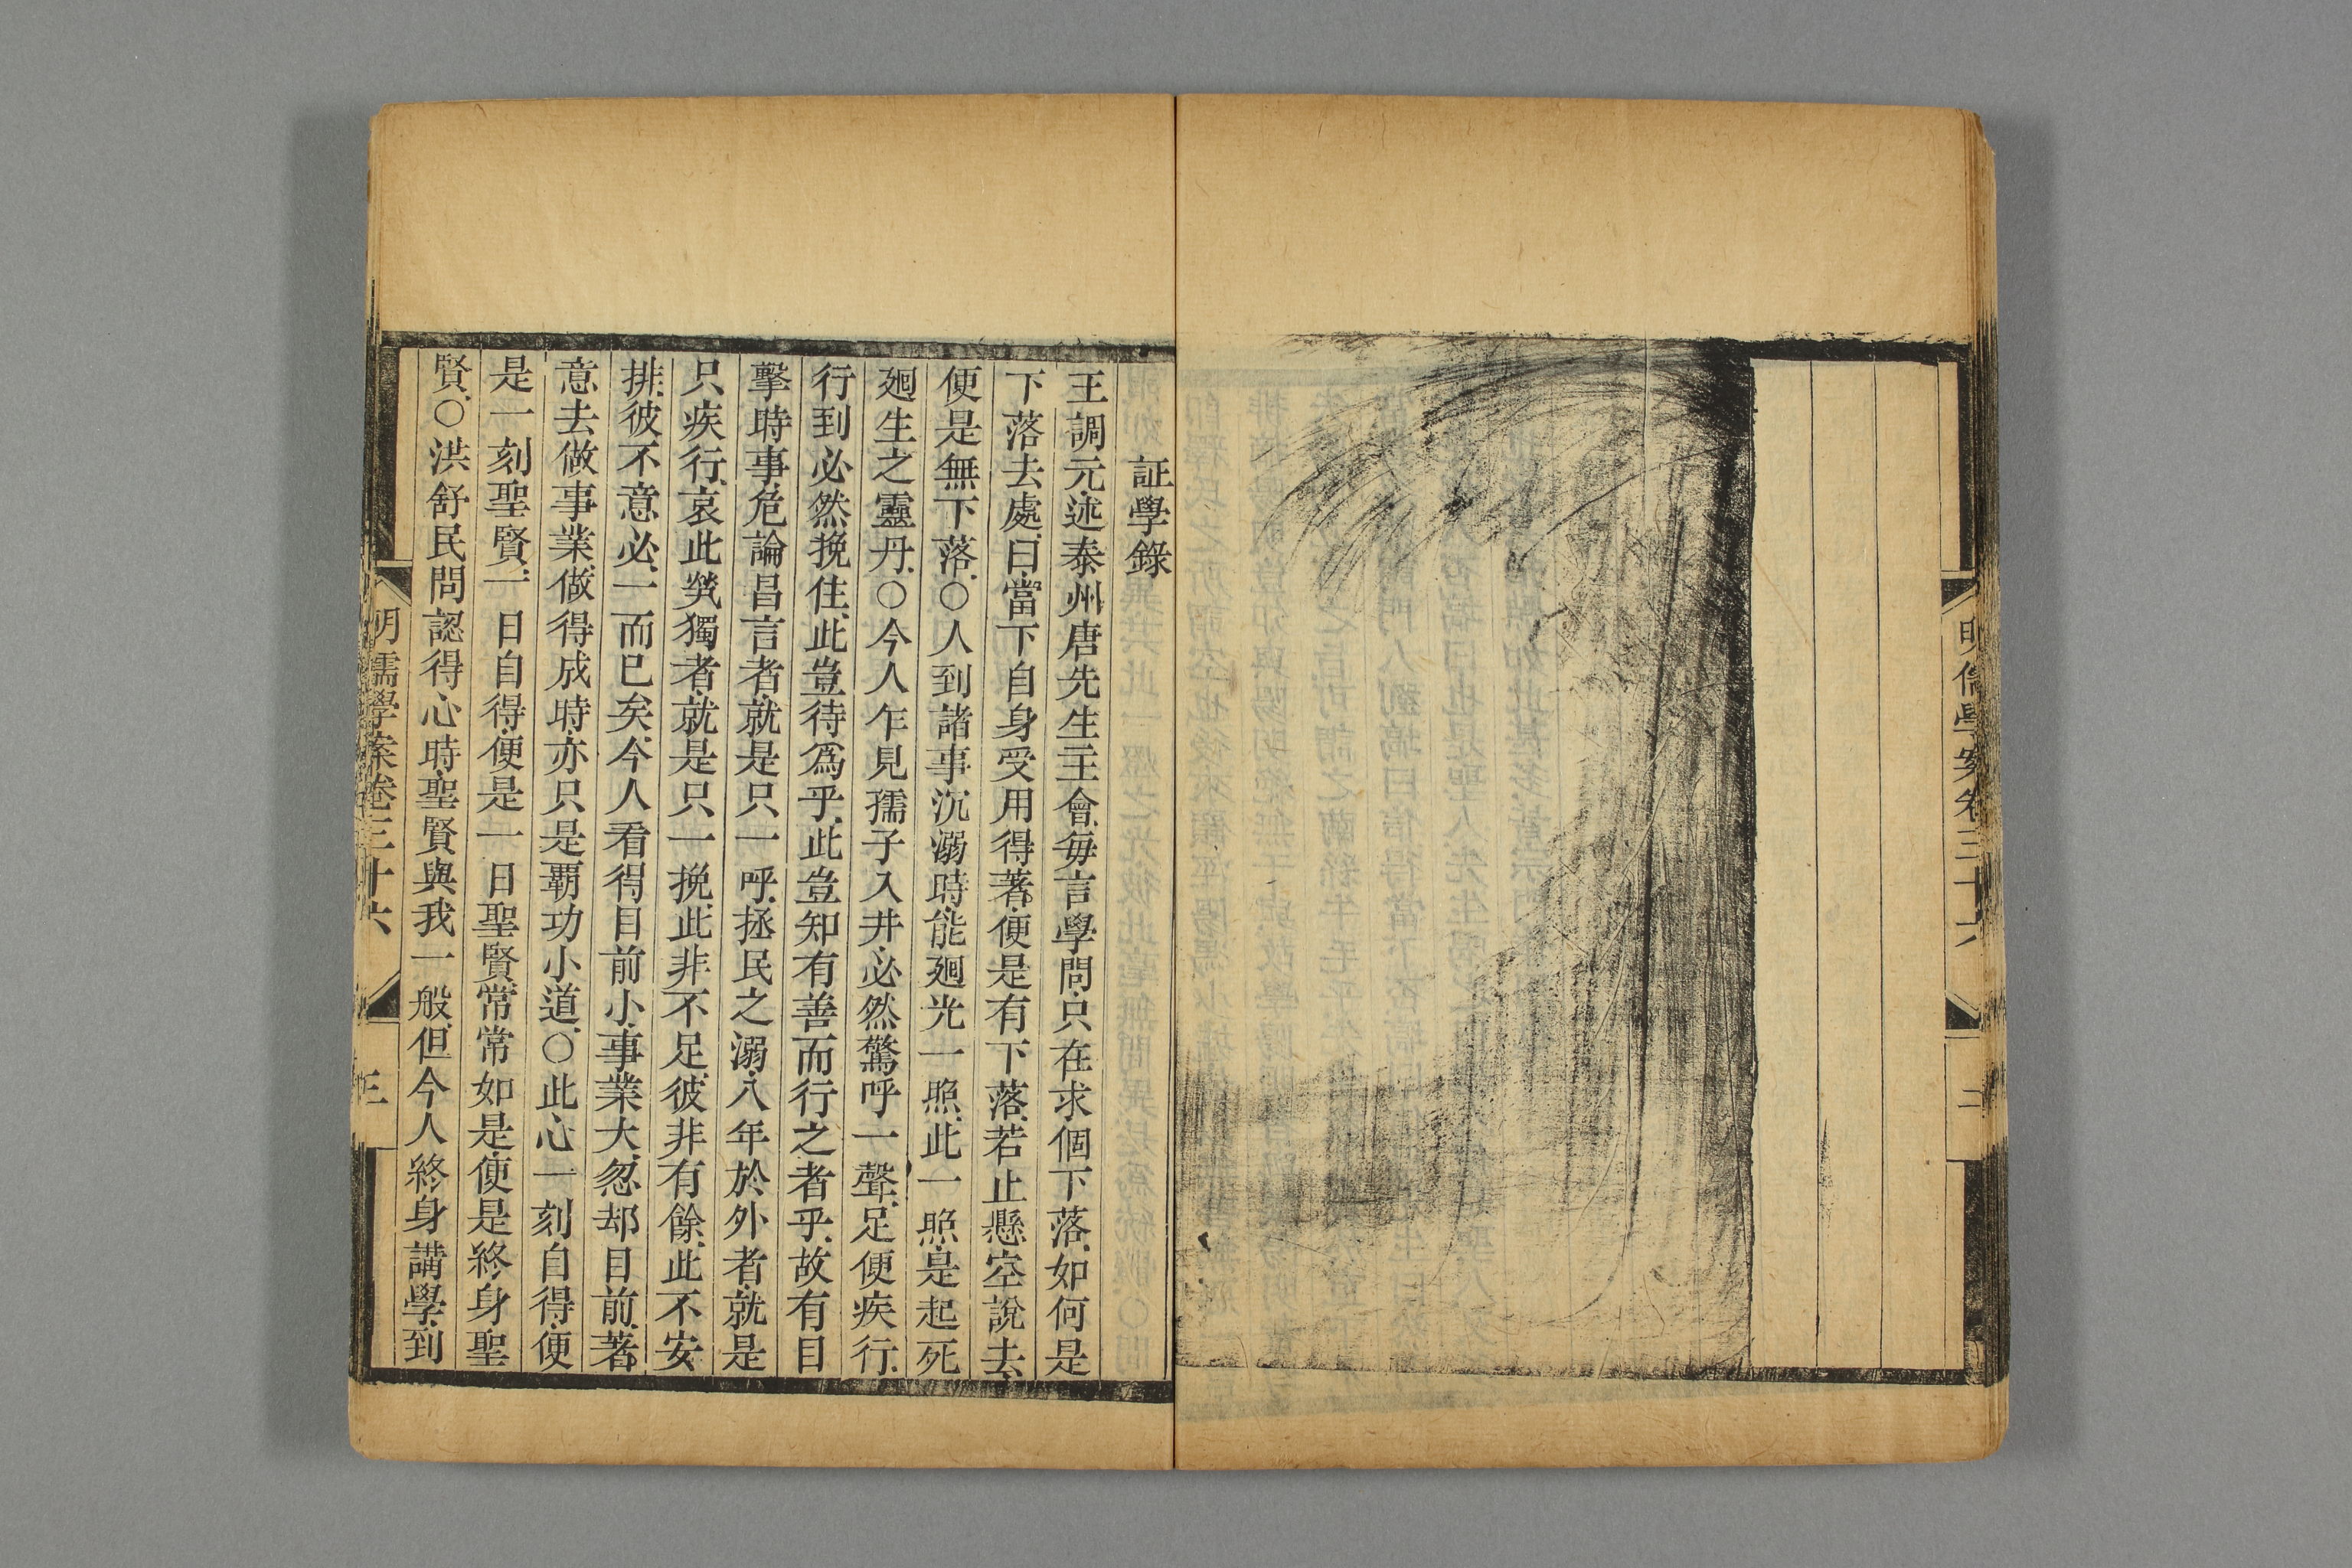 明儒學案卷三十六
二
証學錄
王調元述泰州唐先生主會每言學問只在求個下落如何是
下落去處曰當下自身受用得著便是有下落若止懸空說去
便是無下落○人到諸事沉溺時能廻光一照此一照是起死
廻生之靈丹○今人乍見孺子入井必然驚呼一聲足便疾行
行到必然挽住此豈待爲乎此豈知有善而行之者乎故有目
擊時事危論昌言者就是只一呼拯民之溺八年於外者就是
只疾行哀此煢獨者就是只一挽此非不足彼非有餘此不安
排彼不意必一而已矣今人看得目前小事業大忽却目前著
意去做事業做得成時亦只是覇功小道○此心一刻自得便
是一刻聖賢一日自得便是一日聖賢常常如是便是終身聖
賢○洪舒民問認得心時聖賢與我一般但今人終身講學到
明儒學案卷三十六
三